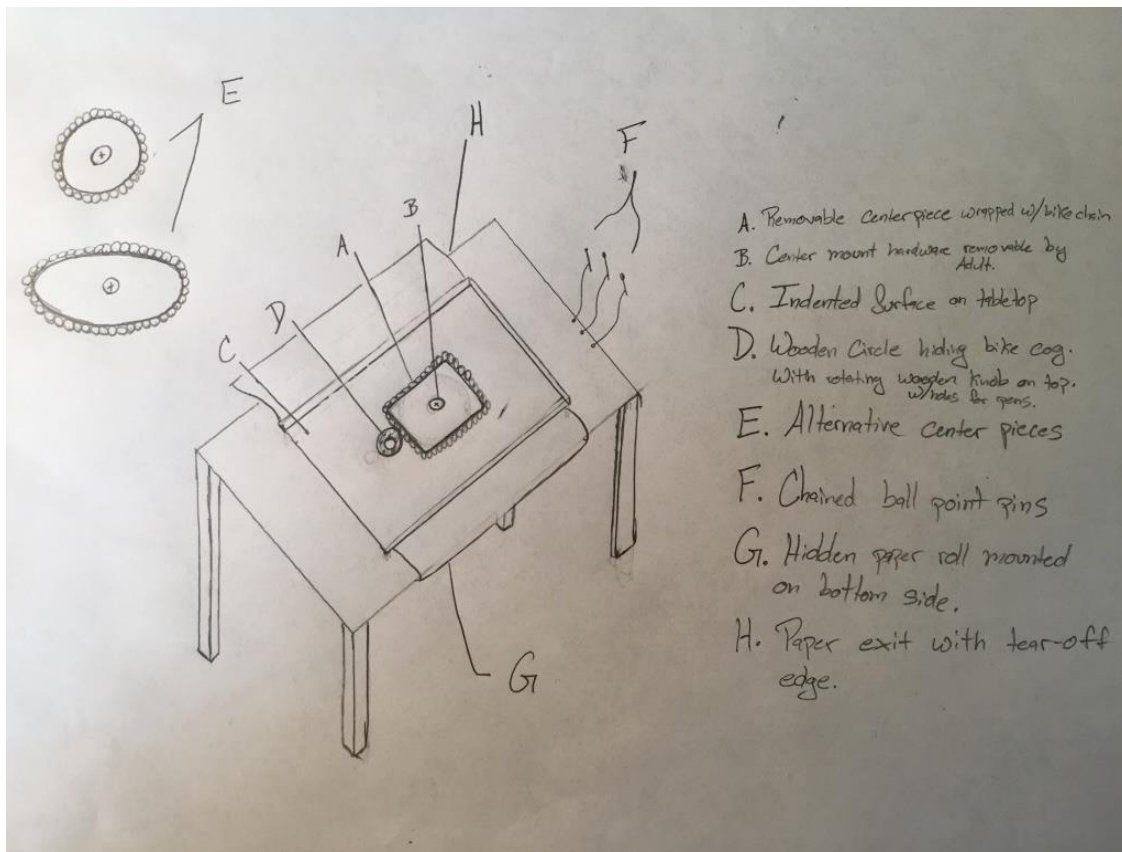 E
H
F
B
A
D
C
G
A. Removable Centerpiece wrapped w/bike chain
B. Center mount hardware removable by
Adult.
C. Indented Surface on tabletop
D. Wooden Circle hiding bike cog.
With rotating wooden knob on top.
w/holes for pens.
E. Alternative Center pieces
F. Chained ball point pins
G. Hidden paper roll mounted
on bottom side.
H. Paper exit with tear-off
edge.